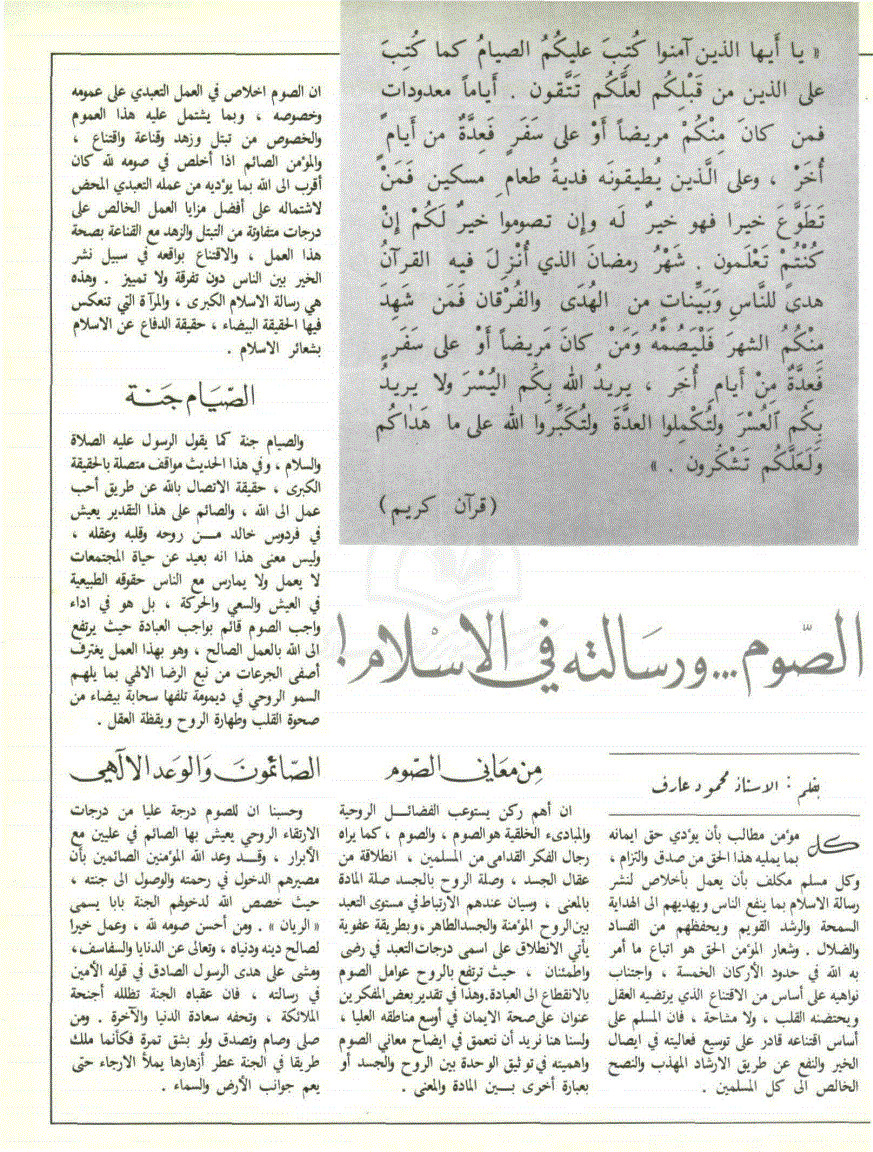 « يا أَيها الذين آمنوا كُتِبَ عليكُمُ الصيامُ كما كُتِبَ
على الذين من قَبْلِكُم لعلَّكُم تَتَّقون . أَياماً معدودات
فمن كانَ مِنْكُمْ مريضاً أَوْ على سَفَرٍ فَعِدَّةٌ من أَيامٍ
أُخَرْ ، وعلى الَّذين يُطيقونَه فديةُ طعامِ مسكين فَمَنْ
تَطَوَّعَ خيرا فهو خيرٌ لَه وإن تصوموا خيرٌ لَكُمْ إنْ
كُنْتُمْ تَعْلَمون . شَهْرُ رمضانَ الذي أُنْزِلَ فيه القرآنُ
هدىً للنَّاسِ وَبَيِّناتٍ من الهُدَى والفُرْقان فَمَن شَهِدَ
مِنْكُمُ الشهرَ فَلْيَصُمْهُ وَمَنْ كانَ مَريضاً أَوْ على سَفَرٍ
فَعِدَّةٌ مِنْ أَيامٍ أُخَر ، يريدُ الله بِكُم اليُسْرَ ولا يريدُ
بِكُم العُسْرَ ولتُكْمِلوا العدَّةَ ولتُكَبِّروا الله على ما هَدَاكُم
وَلَعَلَّكُم تَشْكُرون . »
(قرآن كريم)
الصّوم... ورسَالته في الاسْلام!
بقلم : الاستاذ محمود عارف
كل مؤمن مطالب بأن يؤدي حق ايمانه
بما يمليه هذا الحق من صدق والتزام ،
وكل مسلم مكلف بأن يعمل بأخلاص لنشر
رسالة الاسلام بما ينفع الناس ويهديهم الى الهداية
السمحة والرشد القويم ويحفظهم من الفساد
والضلال . وشعار المؤمن الحق هو اتباع ما أمر
به الله في حدود الأركان الخمسة ، واجتناب
نواهيه على أساس من الاقتناع الذي يرتضيه العقل
ويحتضنه القلب ، ولا مشاحة ، فان المسلم على
أساس اقتناعه قادر على توسيع فعاليته في ايصال
الخير والنفع عن طريق الارشاد المهذب والنصح
الخالص الى كل المسلمين .
مِن معَاني الصّوم
ان أهم ركن يستوعب الفضائل الروحية
والمبادىء الخلقية هو الصوم ، والصوم ، كما يراه
رجال الفكر القدامى من المسلمين ، انطلاقة من
عقال الجسد ، وصلة الروح بالجسد صلة المادة
بالمعنى ، وسيان عندهم الارتباط في مستوى التعبد
بين الروح المؤمنة والجسد الطاهر ، وبطريقة عفوية
يأتي الانطلاق على اسمى درجات التعبد في رضى
واطمئنان ، حيث ترتفع بالروح عوامل الصوم
بالانقطاع الى العبادة . وهذا في تقدير بعض المفكرين
عنوان على صحة الايمان في أوسع مناطقه العليا ،
ولسنا هنا نريد أن نتعمق في ايضاح معاني الصوم
واهميته في توثيق الوحدة بين الروح والجسد أو
بعبارة أخرى بين المادة والمعنى .
ان الصوم اخلاص في العمل التعبدي على عمومه
وخصوصه ، وبما يشتمل عليه هذا العموم
والخصوص من تبتل وزهد وقناعة واقتناع ،
والمؤمن الصائم اذا أخلص في صومه لله كان
أقرب الى الله بما يؤديه من عمله التعبدي المحض
لاشتماله على أفضل مزايا العمل الخالص على
درجات متفاوتة من التبتل والزهد مع القناعة بصحة
هذا العمل ، والاقتناع بواقعه في سبيل نشر
الخير بين الناس دون تفرقة ولا تمييز . وهذه
هي رسالة الاسلام الكبرى ، والمرآة التي تنعكس
فيها الحقيقة البيضاء ، حقيقة الدفاع عن الاسلام
بشعائر الاسلام .
الصّيَام جَنَة
والصيام جنة كما يقول الرسول عليه الصلاة
والسلام ، وفي هذا الحديث مواقف متصلة بالحقيقة
الكبرى ، حقيقة الاتصال بالله عن طريق أحب
عمل الى الله ، والصائم على هذا التقدير يعيش
في فردوس خالد مــن روحه وقلبه وعقله ،
وليس معنى هذا انه بعيد عن حياة المجتمعات
لا يعمل ولا يمارس مع الناس حقوقه الطبيعية
في العيش والسعي والحركة ، بل هو في اداء
واجب الصوم قائم بواجب العبادة حيث يرتفع
الى الله بالعمل الصالح ، وهو بهذا العمل يغترف
أصفى الجرعات من نبع الرضا الالهي بما يلهم
السمو الروحي في ديمومة تلفها سحابة بيضاء من
صحوة القلب وطهارة الروح ويقظة العقل .
الصّائمونَ وَالوعَد الالٓهي
وحسبنا ان للصوم درجة عليا من درجات
الارتقاء الروحي يعيش بها الصائم في عليين مع
الأبرار ، وقــد وعد الله المؤمنين الصائمين بأن
مصيرهم الدخول في رحمته والوصول الى جنته ،
حيث خصص الله لدخولهم الجنة بابا يسمى
« الريان » . ومن أحسن صومه لله ، وعمل خيرا
لصالح دينه ودنياه ، وتعالى عن الدنايا والسفاسف ،
ومشى على هدى الرسول الصادق في قوله الأمين
في رسالته ، فان عقباه الجنة تظلله أجنحة
الملائكة ، وتحفه سعادة الدنيا والآخرة . ومن
صلى وصام وتصدق ولو بشق تمرة فكأنما ملك
طريقا في الجنة عطر أزهارها يملأ الارجاء حتى
يعم جوانب الأرض والسماء .